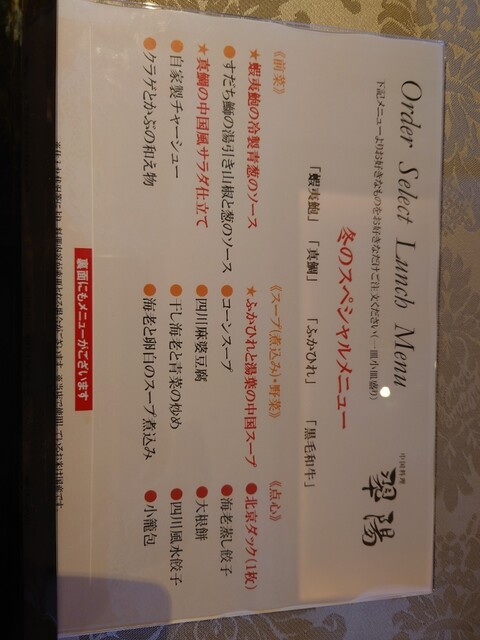 Order Select Lunch Menu
下記メニューよりお好きなものをお好きなだけご注文ください(一皿小皿盛り)
中国料理
翠陽
冬のスペシャルメニュー
「蝦夷鮑」 「真鯛」 「ふかひれ」 「黒毛和牛」
《前菜》
★蝦夷鮑の冷製青葱のソース
●すだち鰤の湯引き山椒と葱のソース
★真鯛の中国風サラダ仕立て
●自家製チャーシュー
●クラゲとかぶの和え物
《スープ(煮込み)・野菜》
★ふかひれと湯葉の中国スープ
●コーンスープ
●四川麻婆豆腐
●干し海老と青菜の炒め
●海老と卵白のスープ煮込み
《点心》
★北京ダック(1枚)
●海老蒸し餃子
●大根餅
●四川風水餃子
●小籠包
裏面にもメニューがございます